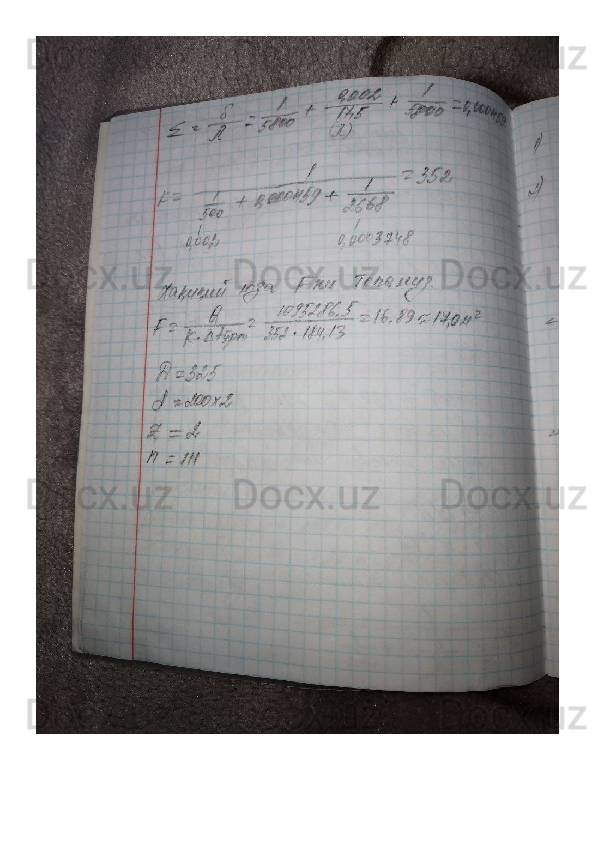 Docx.uz Docx.uz Docx.uz
Σ = δ/λ = 1/5800 + 0,002/17,5 (λ) + 1/5800 = 0,000459
K = 1 / (1/500 + 0,000459 + 1/2668) = 352
0,002 0,0003748
Хақиқий юза F ни топамиз
F = Q/(K·Δtўрт) = 1095286,5/(352·184,13) = 16,89 ≈ 17,0 м²
Д = 325
d = 200×2
Z = 2
n =
Docx.uz Docx.uz Docx.uz
Docx.uz Docx.uz Docx.uz